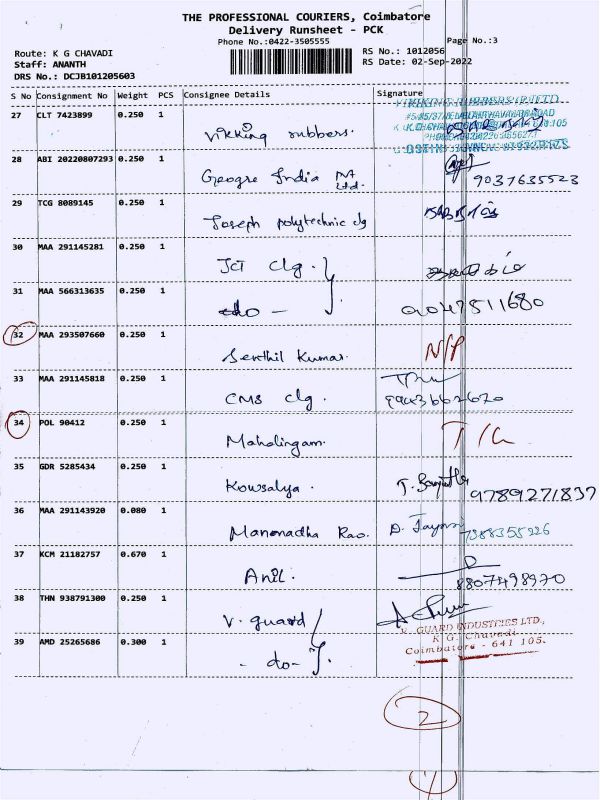 THE PROFESSIONAL COURIERS, Coimbatore
Delivery Runsheet - PCK
Phone No.:0422-3505555
Page No.:3
Route: K G CHAVADI
Staff: ANANTH
DRS No.: DCJB101205603
RS No.: 1012056
RS Date: 02-Sep-2022
S No Consignment No Weight PCS Consignee Details Signature
27 CLT 7423899 0.250 1
Vikking rubbers.
28 ABI 20220807293 0.250 1
Geogre India Pvt Ltd. 9037635523
29 TCG 8089145 0.250 1
Joseph polytechnic clg
30 MAA 291145281 0.250 1
JCT clg.
31 MAA 566313635 0.250 1
-do- 9047511680
32 MAA 293507660 0.250 1
Senthil Kumar. N/P
33 MAA 291145818 0.250 1
CMS clg.
34 POL 90412 0.250 1
Mahalingam.
35 GDR 5285434 0.250 1
Kowsalya. 9789271837
36 MAA 291143920 0.080 1
Manonadha Rao.
37 KCM 21182757 0.670 1
Anil. 8807498970
38 THN 938791300 0.250 1
V. guard
V. GUARD INDUSTRIES LTD.,
K G. Chavadi
Coimbatore - 641 105.
39 AMD 25265686 0.300 1
-do-
2